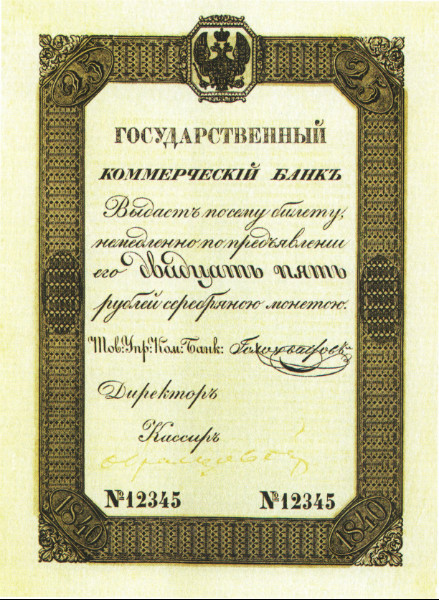 25 25
ГОСУДАРСТВЕННЫЙ
КОММЕРЧЕСКІЙ БАНКЪ
Выдастъ посему билету,
немедленно по предъявленіи
его двадцать пять
рублей серебряною монетою.
Тов: Упр: Ком: Банк:
Директоръ
Кассиръ
№12345 №12345
1840 1840